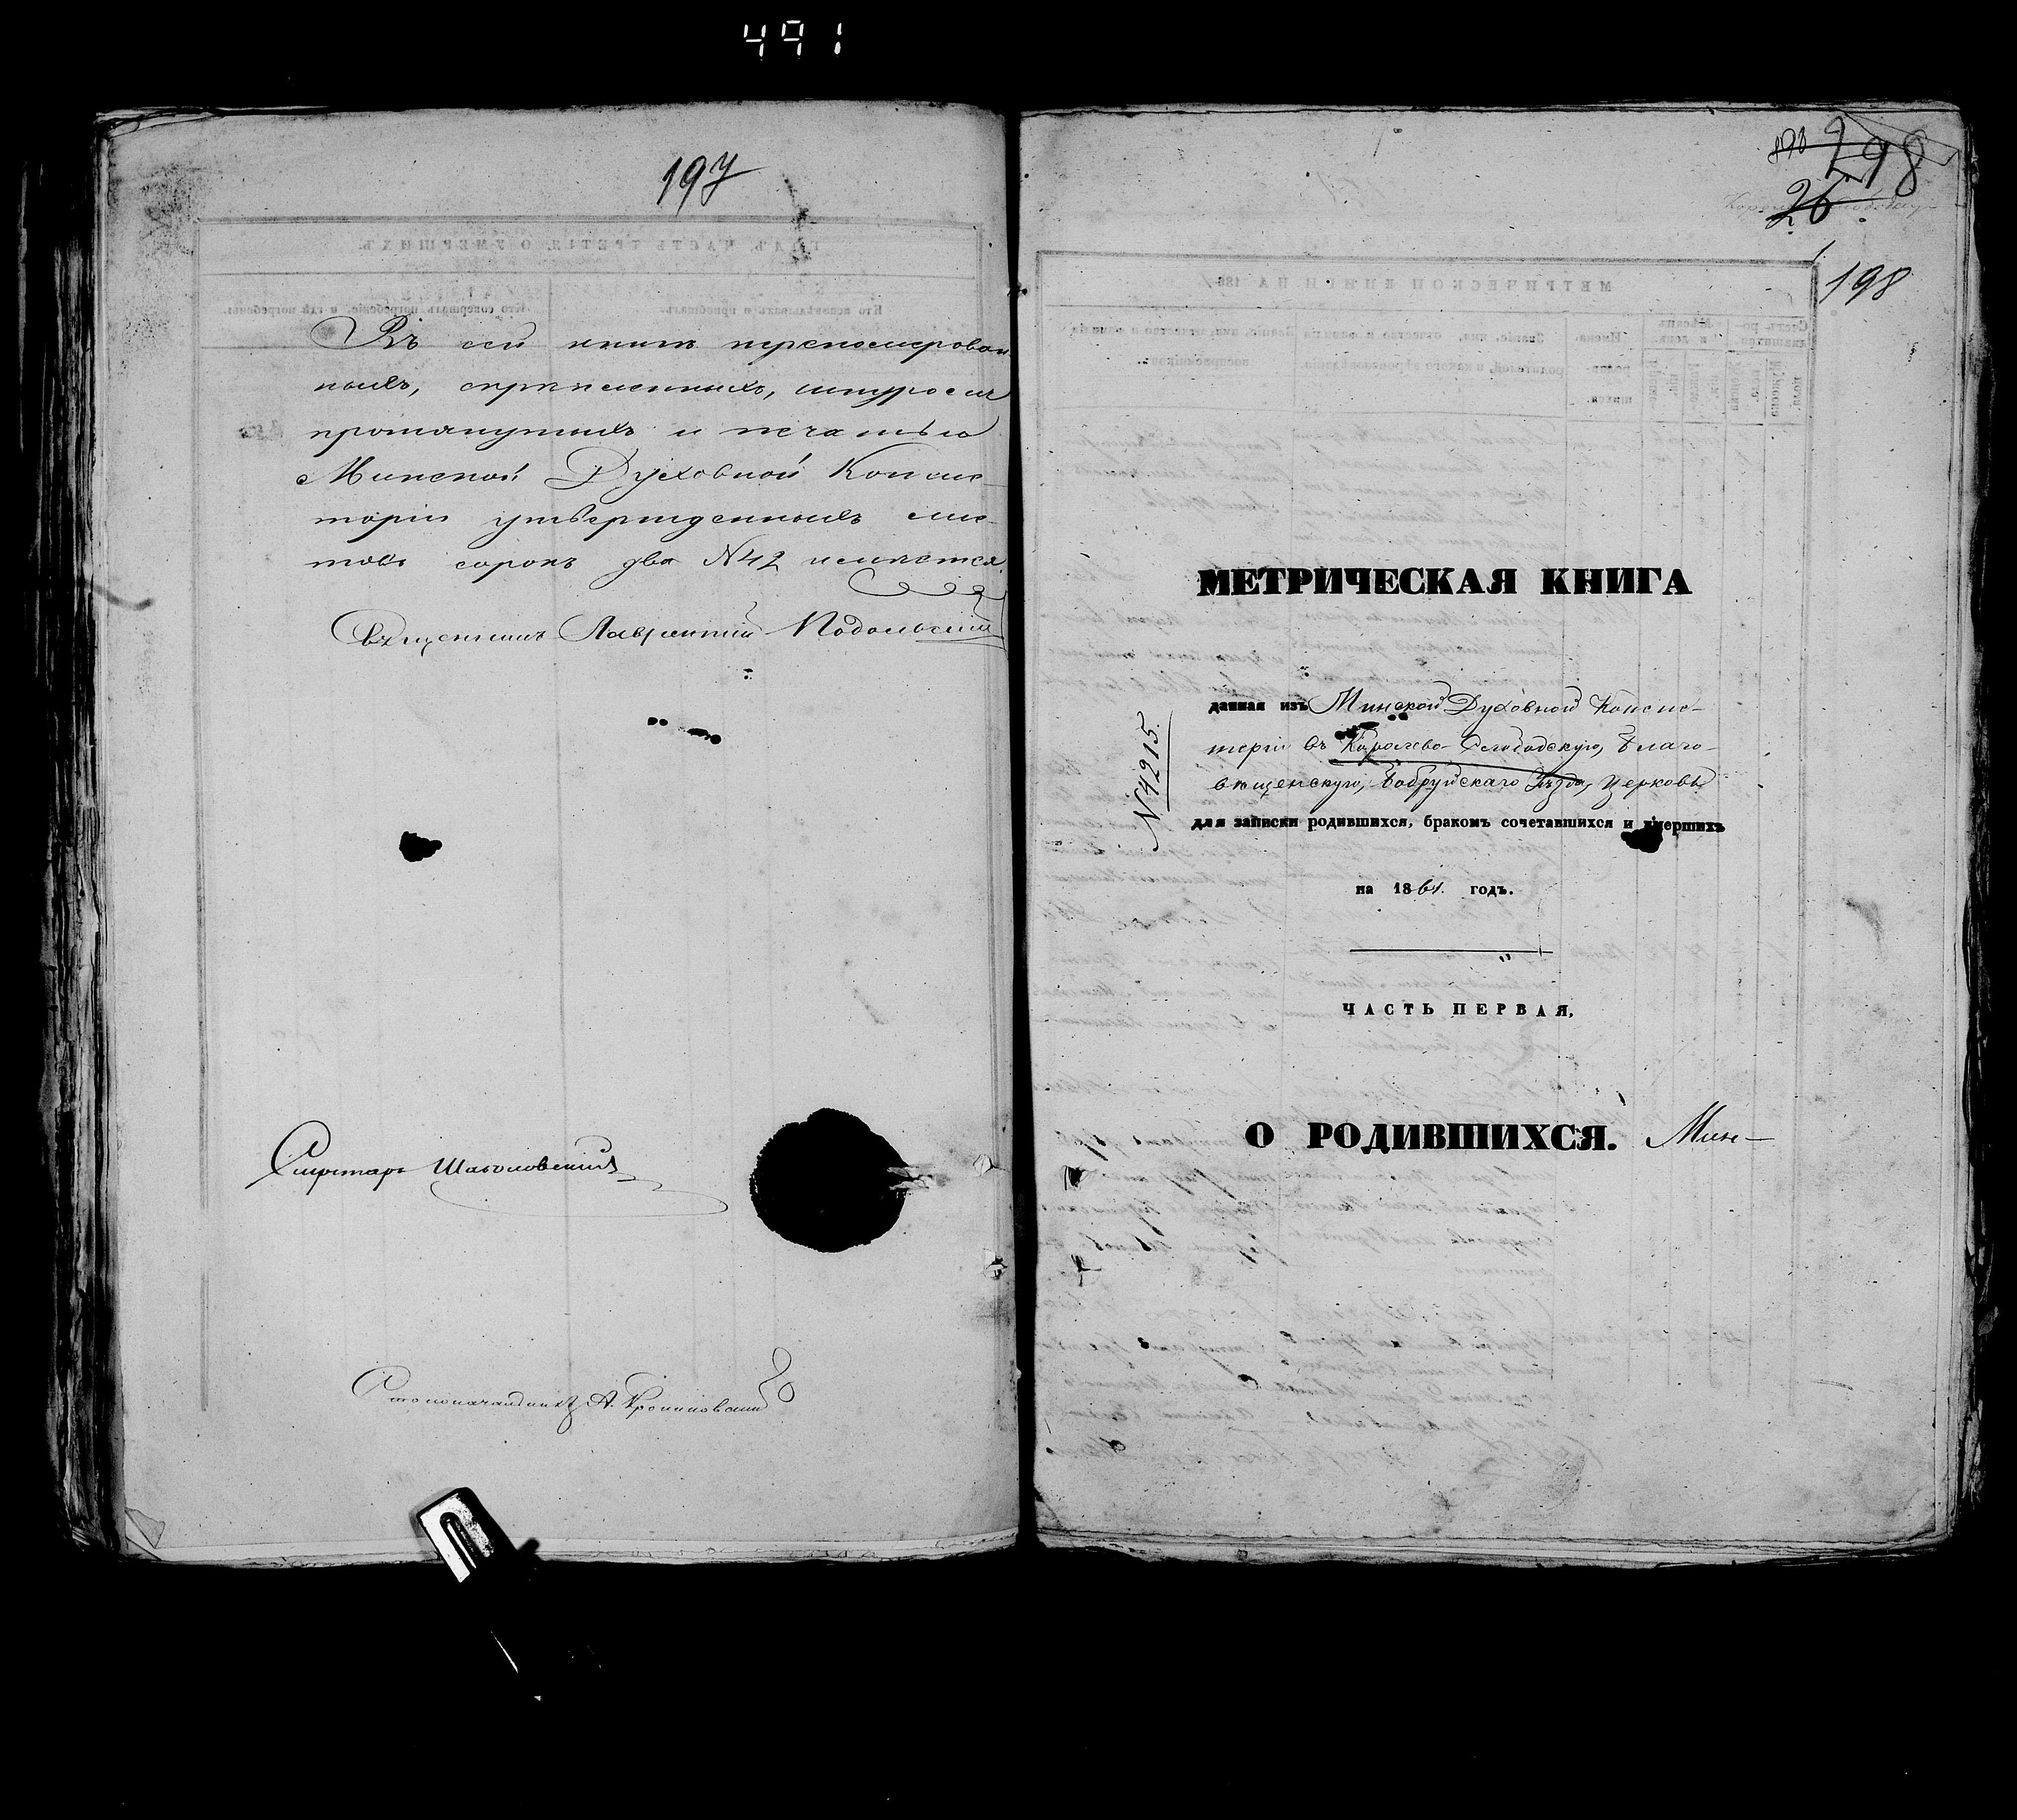 491
197
Въ сей книгѣ перенумерован
ныхъ, скрѣпленныхъ, шнуромъ
протянутыхъ и печатью
Минской Духовной Консис-
торіи утвержденныхъ лис-
товъ сорокъ два №42 имѣется.
Священникъ Лаврентій Подольскій
Секретарь
Столоначальникъ А.
198
26
198
МЕТРИЧЕСКАЯ КНИГА
данная изъ Минской Духовной Консис-
торіи въ Королево-Слободскую, Благо-
вѣщенскую, Бобруйскаго Уѣзда, Церковь
для записки родившихся, бракомъ сочетавшихся и умершихъ
№4215.
на 1861. годъ.
ЧАСТЬ ПЕРВАЯ,
О РОДИВШИХСЯ. Мин-